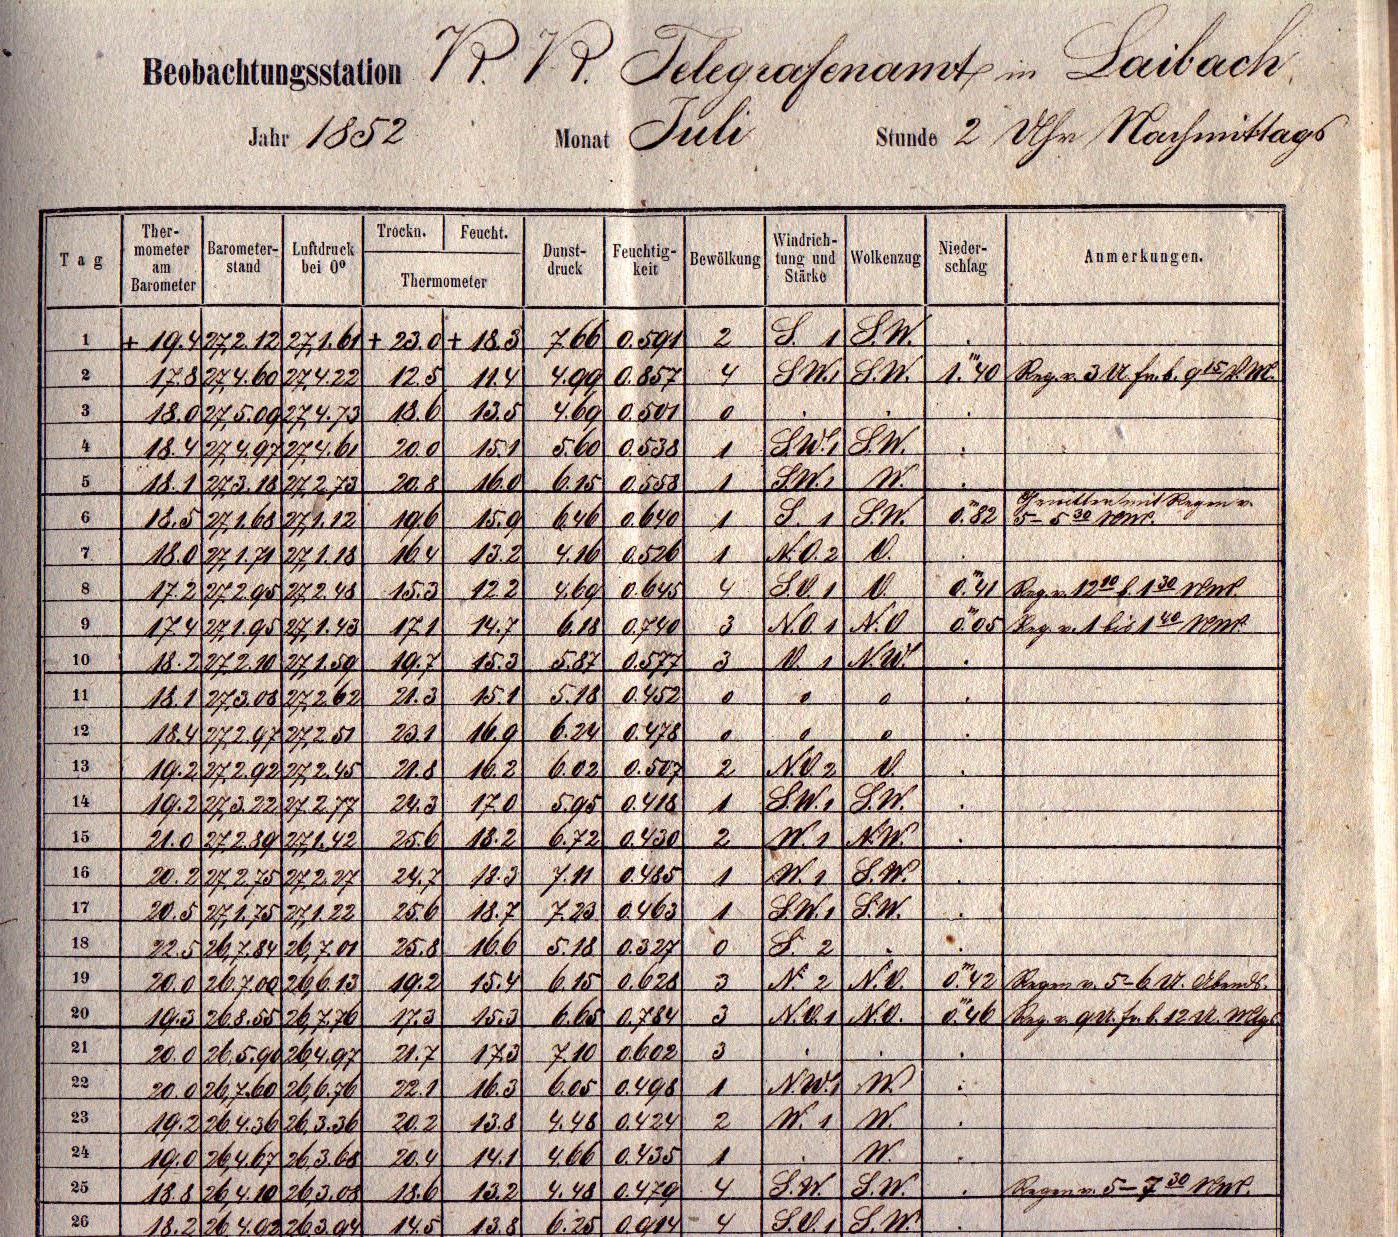 Beobachtungsstation K. K. Telegrafenamt in Laibach
Jahr 1852 Monat Juli Stunde 2 Uhr Nachmittags
Tag Ther-mometer am Barometer Barometer-stand Luftdruck bei 0° Trockn. Feucht. Thermometer Dunst-druck Feuchtig-keit Bewölkung Windrich-tung und Stärke Wolkenzug Nieder-schlag Anmerkungen.
1 + 19.4 27,2.12 27,1.61 + 23.0 + 18.3 7.66 0.591 2 S. 1 S.W. .
2 17.8 27,4.60 27,4.22 12.5 11.4 4.99 0.857 4 S.W.1 S.W. 1.‴40 Reg. v. 3 U. fr. b. 9 15 V.M.
3 18.0 27,5.09 27,4.73 18.6 13.5 4.69 0.501 0 . . .
4 18.4 27,4.97 27,4.61 20.0 15.1 5.60 0.538 1 S.W.1 S.W. .
5 18.1 27,3.18 27,2.73 20.8 16.0 6.15 0.558 1 S.W.1 W. .
6 18.5 27,1.68 27,1.12 19.6 15.9 6.46 0.640 1 S. 1 S.W. 0.‴82 Gewitter mit Regen v. 5 – 5 30 NM.
7 18.0 27,1.71 27,1.18 16.4 13.2 4.16 0.526 1 N.O. 2 O. .
8 17.2 27,2.95 27,2.48 15.3 12.2 4.69 0.645 4 S.O. 1 O. 0.‴41 Reg. v. 12 10 b. 1 30 NM.
9 17.4 27,1.95 27,1.43 17.1 14.7 6.18 0.740 3 N.O. 1 N.O 0.‴05 Reg. v. 1 bis 1 40 NM.
10 18.2 27,2.10 27,1.59 19.7 15.3 5.87 0.577 3 O. 1 N.W. .
11 18.1 27,3.08 27,2.62 21.3 15.1 5.18 0.452 0 0 0 .
12 18.4 27,2.97 27,2.51 23.1 16.9 6.24 0.478 0 0 0 .
13 19.2 27,2.92 27,2.45 21.8 16.2 6.02 0.507 2 N.O. 2 O. .
14 19.2 27,3.22 27,2.77 24.3 17.0 5.95 0.418 1 S.W.1 S.W. .
15 21.0 27,2.89 27,1.42 25.6 18.2 6.72 0.430 2 W. 1 N.W. .
16 20.2 27,2.75 27,2.27 24.7 18.3 7.11 0.485 1 W. 1 S.W. .
17 20.5 27,1.75 27,1.22 25.6 18.7 7.23 0.463 1 S.W.1 S.W. .
18 22.5 26,7.84 26,7.01 25.8 16.6 5.18 0.327 0 S. 2 . .
19 20.0 26,7.00 26,6.13 19.2 15.4 6.15 0.628 3 N. 2 N.O. 0.‴42 Regen v. 5–6 U. Abends.
20 19.3 26,8.55 26,7.76 17.3 15.3 6.65 0.784 3 N.O.1 N.O. 0.‴46 Reg. v. 9 U. fr. b. 12 U. Mttgs
21 20.0 26,5.90 26,4.97 21.7 17.3 7.10 0.602 3 . . .
22 20.0 26,7.60 26,6.76 22.1 16.3 6.05 0.498 1 N.W.1 W. .
23 19.2 26,4.36 26,3.36 20.2 13.8 4.48 0.424 2 W. 1 W. .
24 19.0 26,4.67 26,3.68 20.4 14.1 4.66 0.435 1 . W. .
25 18.8 26,4.10 26,3.08 18.6 13.2 4.48 0.479 4 S.W. S.W. . Regen v. 5 – 7 30 NM.
26 18.2 26,4.92 26,3.94 14.5 13.8 6.25 0.914 4 S.O.1 S.W. .